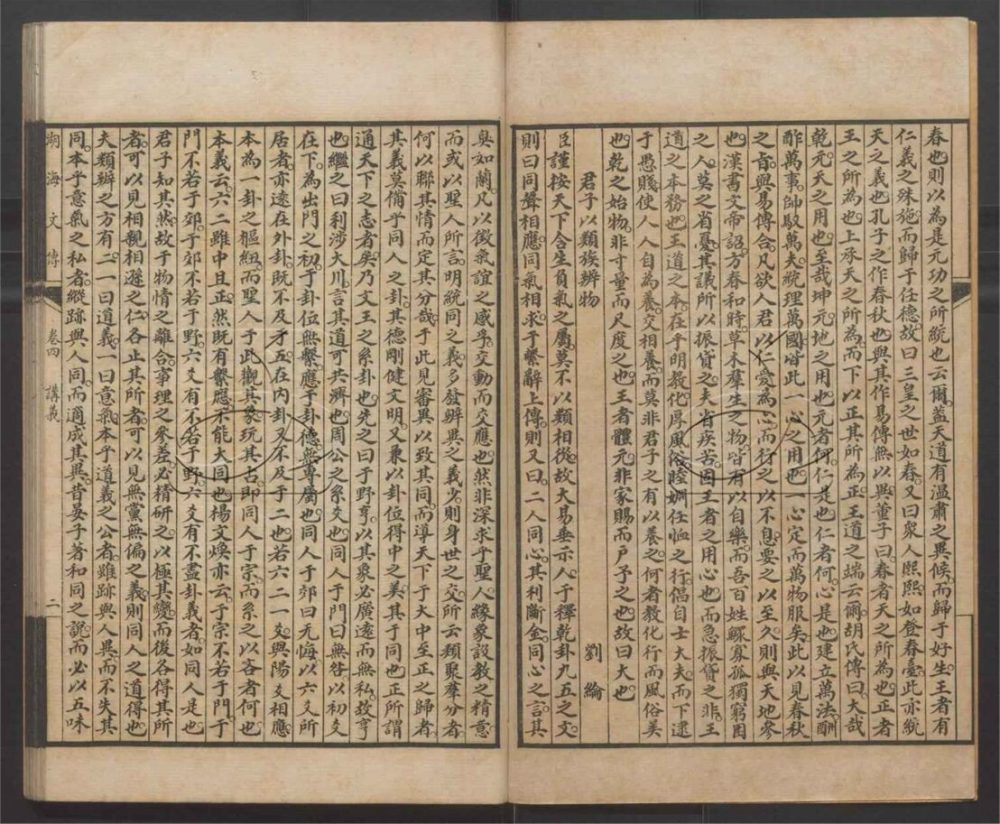 春也則以為是元功之所統也云爾蓋天道有溫肅之異候而歸于好生王者有
仁義之殊施而歸于任德故曰三皇之世如春又曰衆人熙熙如登春臺此亦統
天之義也孔子之作春秋也與其作易傳無以異董子曰春者天之所為也正者
王之所為也上承天之所為而下以正其所為正王道之端云爾胡氏傳曰大哉
乾元天之用也至哉坤元地之用也元者何仁是也仁者何心是也建立萬法酬
酢萬事帥馭萬夫統理萬國皆此一心之用也一心定而萬物服矣此以見春秋
之旨與易傳合凡欲人君以仁愛為心而行之以不息要之以至久則與天地參
也漢書文帝詔方春和時草木羣生之物皆有以自樂而吾百姓鰥寡孤獨窮困
之人莫之省憂其議所以振貸之夫省疾苦因王者之用心也而急振貸之非王
道之本務也王道之本在乎明教化厚風俗睦婣任恤之行倡自士大夫而下逮
于愚賤使人人自為養交相養而莫非君子之有以養之何者教化行而風俗美
也乾之始物非寸量而尺度之也王者體元非家賜而戶予之也故曰大也
君子以類族辨物 劉綸
臣謹按天下含生負氣之屬莫不以類相從故大易垂示人于釋乾卦九五之文
則曰同聲相應同氣相求于繫辭上傳則又曰二人同心其利斷金同心之言其
臭如蘭凡以徵氣誼之感孚交動而交應也然非深求乎聖人緣象設教之精意
而或以聖人所言明統同之義多發辨異之義少則身世之交所云類聚羣分者
何以聯其情而定其分哉于此見審異以致其同而導天下于大中至正之歸者
其義莫備乎同人之卦其德剛健文明又兼以卦位得中之美其于同也正所謂
通天下之志者矣乃文王之系卦也先之曰于野亨以其象必廣遠而無私故亨
也繼之曰利涉大川言其道可共濟也周公之系爻也同人于門曰無咎以初爻
在下為出門之初于卦位無繫應于卦德無專屬也同人于郊曰无悔以六爻所
居者亦遠在外卦既不及于五在內卦又不及于二也若六二一爻與陽爻相應
本為一卦之樞紐而聖人于此觀其象玩其占即同人于宗而系之以吝者何也
本義云六二雖中且正然既有繫應不能大同也楊文煥亦云于宗不若于門于
門不若于郊于郊不若于野六爻有不若于野六爻有不盡卦義者如同人是也
君子知其然故于物情之離合事理之參差必精研之以極其變而後各得其所
者可以見相親相遜之仁各止其所者可以見無黨無偏之義則同人之道得也
夫類辨之方有二一曰道義一曰意氣本乎道義之公者雖跡與人異而不失其
同本乎意氣之私者縱跡與人同而適成其異昔晏子著和同之說而必以五味
湖海文傳 卷四 講義 二